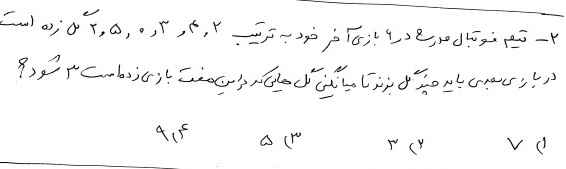 ۲- تیم فوتبال مدرسه در ۶ بازی آخر خود به ترتیب ۲ ، ۴ ، ۳ ، ۰ ، ۵ ، ۲ گل زده است
در بازی بعدی باید چند گل بزند تا میانگین گل هایی که در این هفت بازی زده است ۳ شود؟
۱) ۷ ۲) ۳ ۳) ۵ ۴) ۹